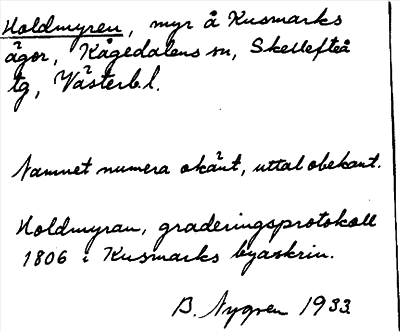 Holdmyren, myr å Kusmarks
ägor, Kågedalens sn, Skellefteå
tg, Västerb.l.
Namnet numera okänt, uttal obekant.
Holdmyran, graderingsprotokoll
1806 i Kusmarks byaskrin.
B. Nygren 1933.